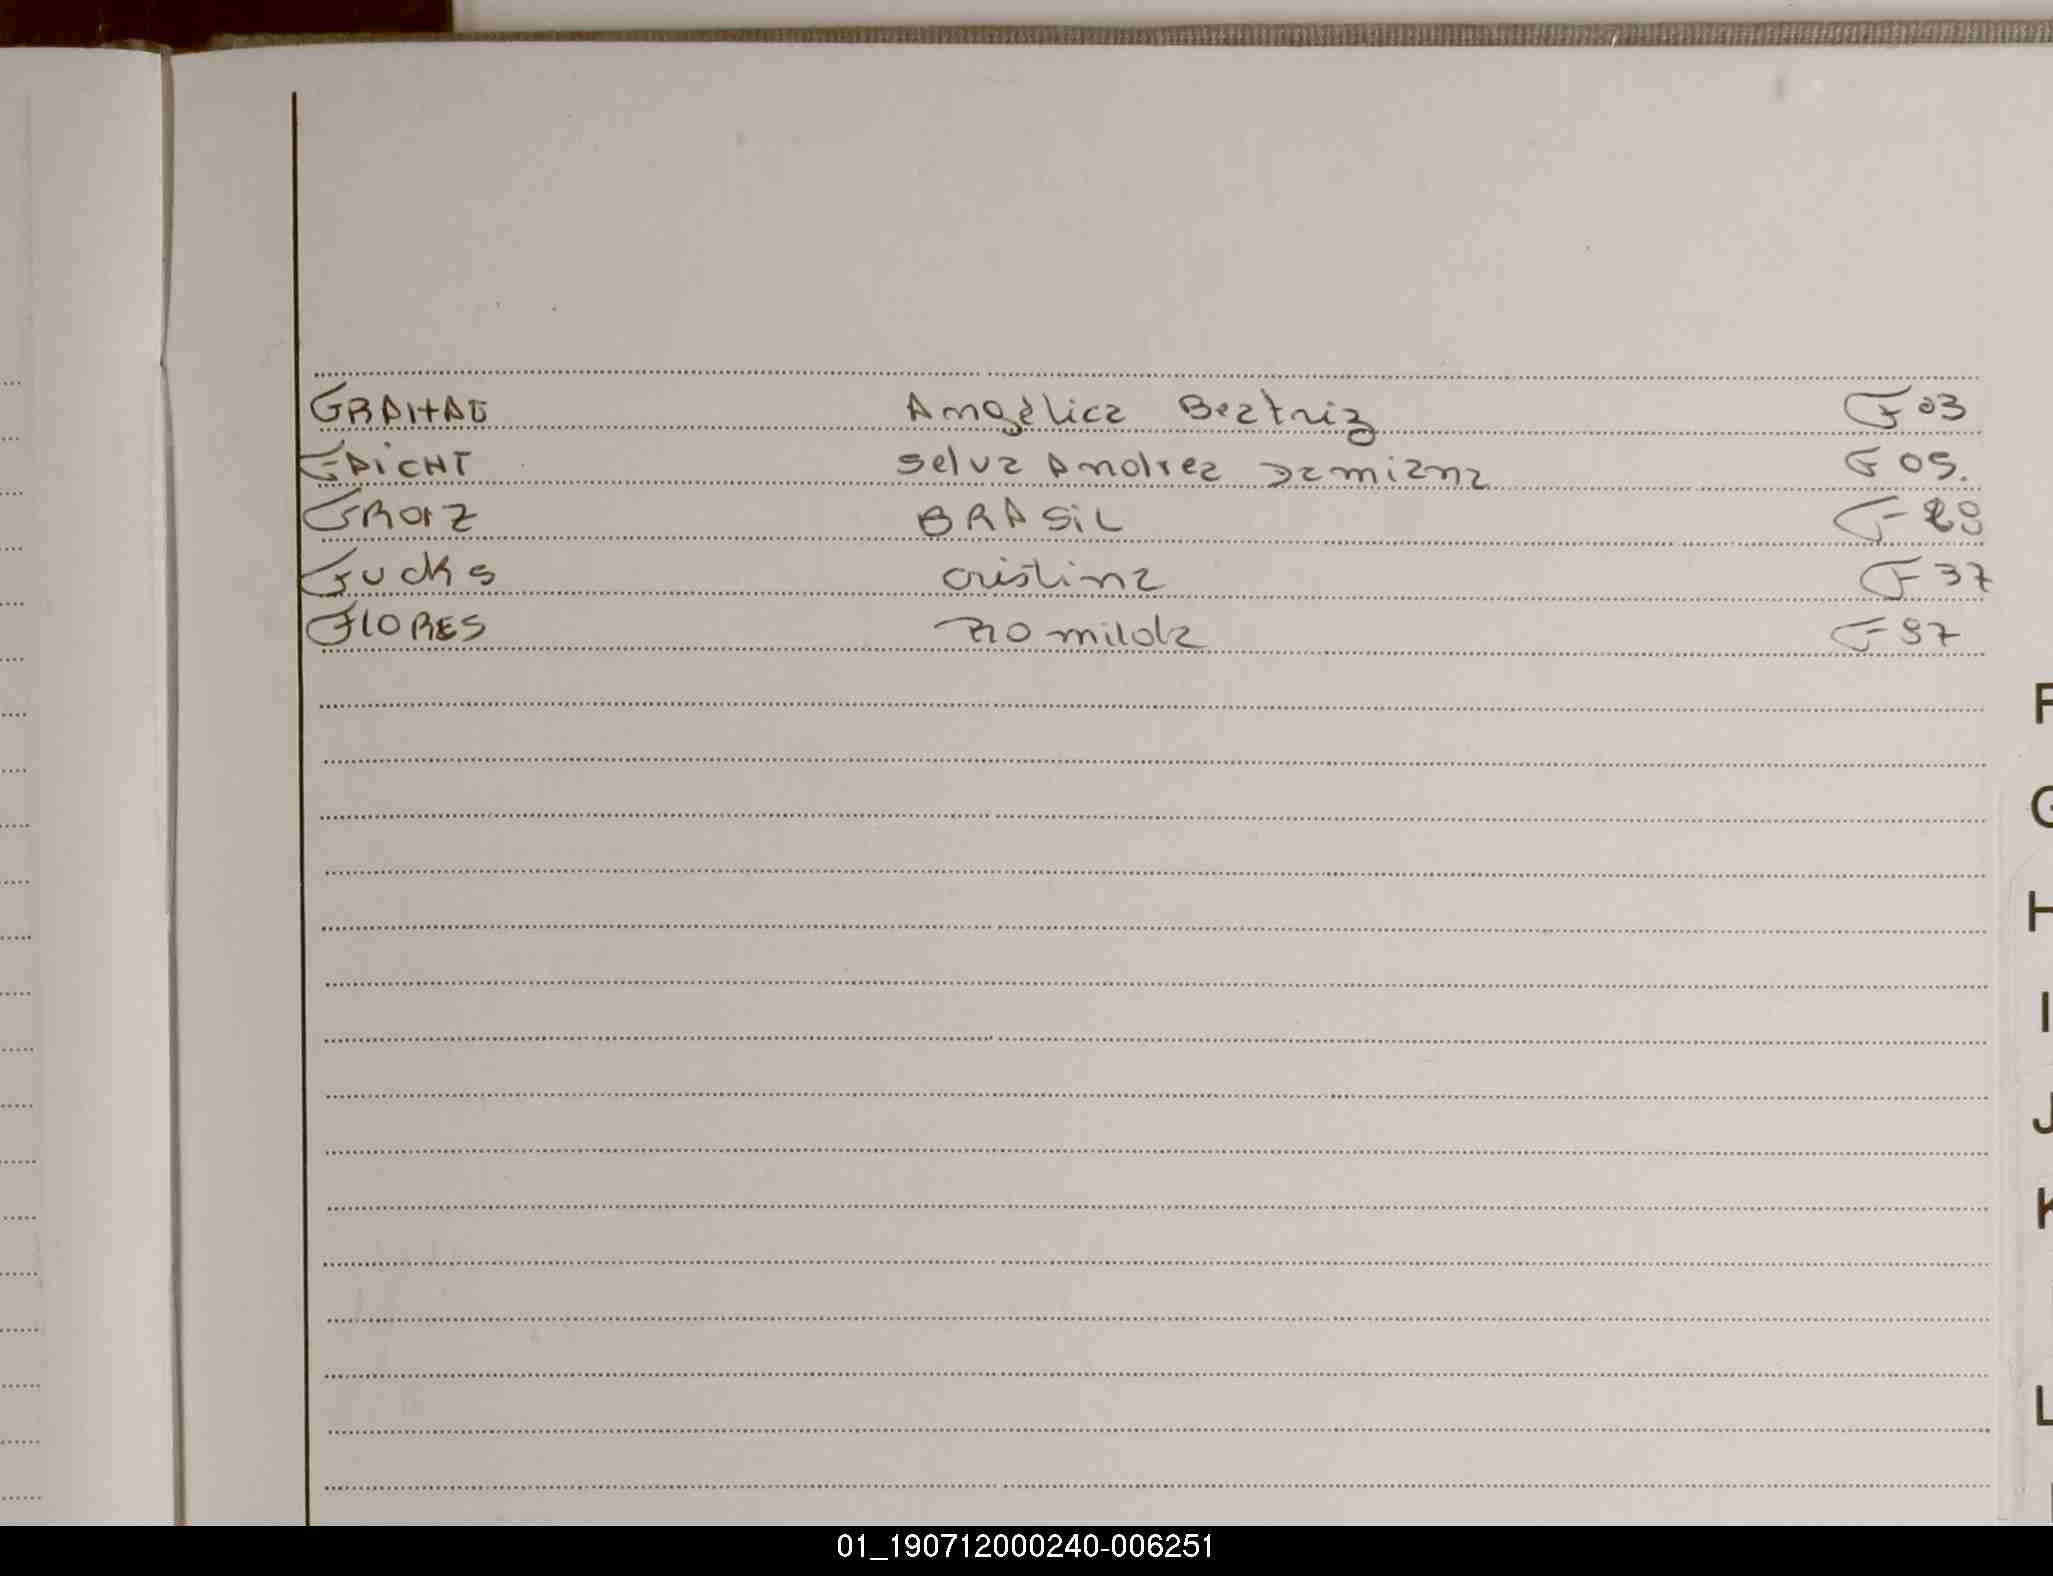 FRAITAG Angélica Beatriz F 03
FAICHT Selva Andrea Damiana F 05.
FROIZ BRASIL F 29
Fucks Cristina F 37
FLORES Romilda F 97
F
G
H
I
J
K
L
01_190712000240-006251